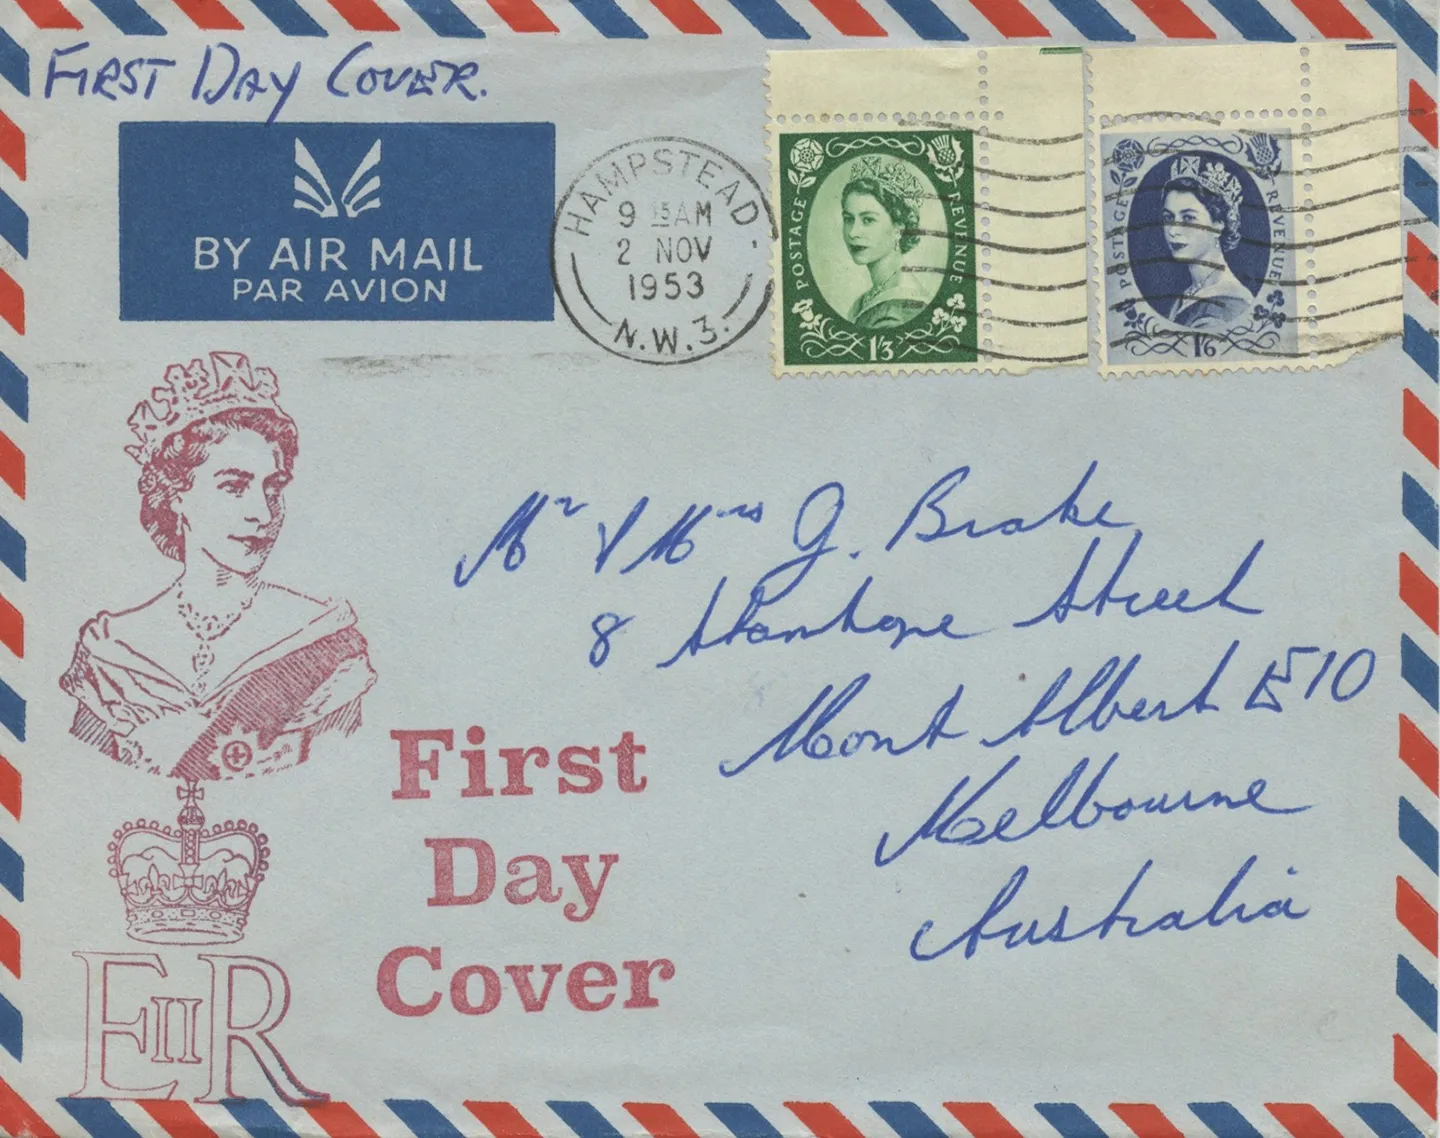 FIRST DAY COVER.
BY AIR MAIL
PAR AVION
HAMPSTEAD.
9 15AM
2 NOV
1953
N.W.3.
POSTAGE
REVENUE
1/3
POSTAGE
REVENUE
1/6
Mr & Mrs J. Brake
8 Stanhope Street
Mont Albert E10
Melbourne
Australia
First
Day
Cover
EIIR